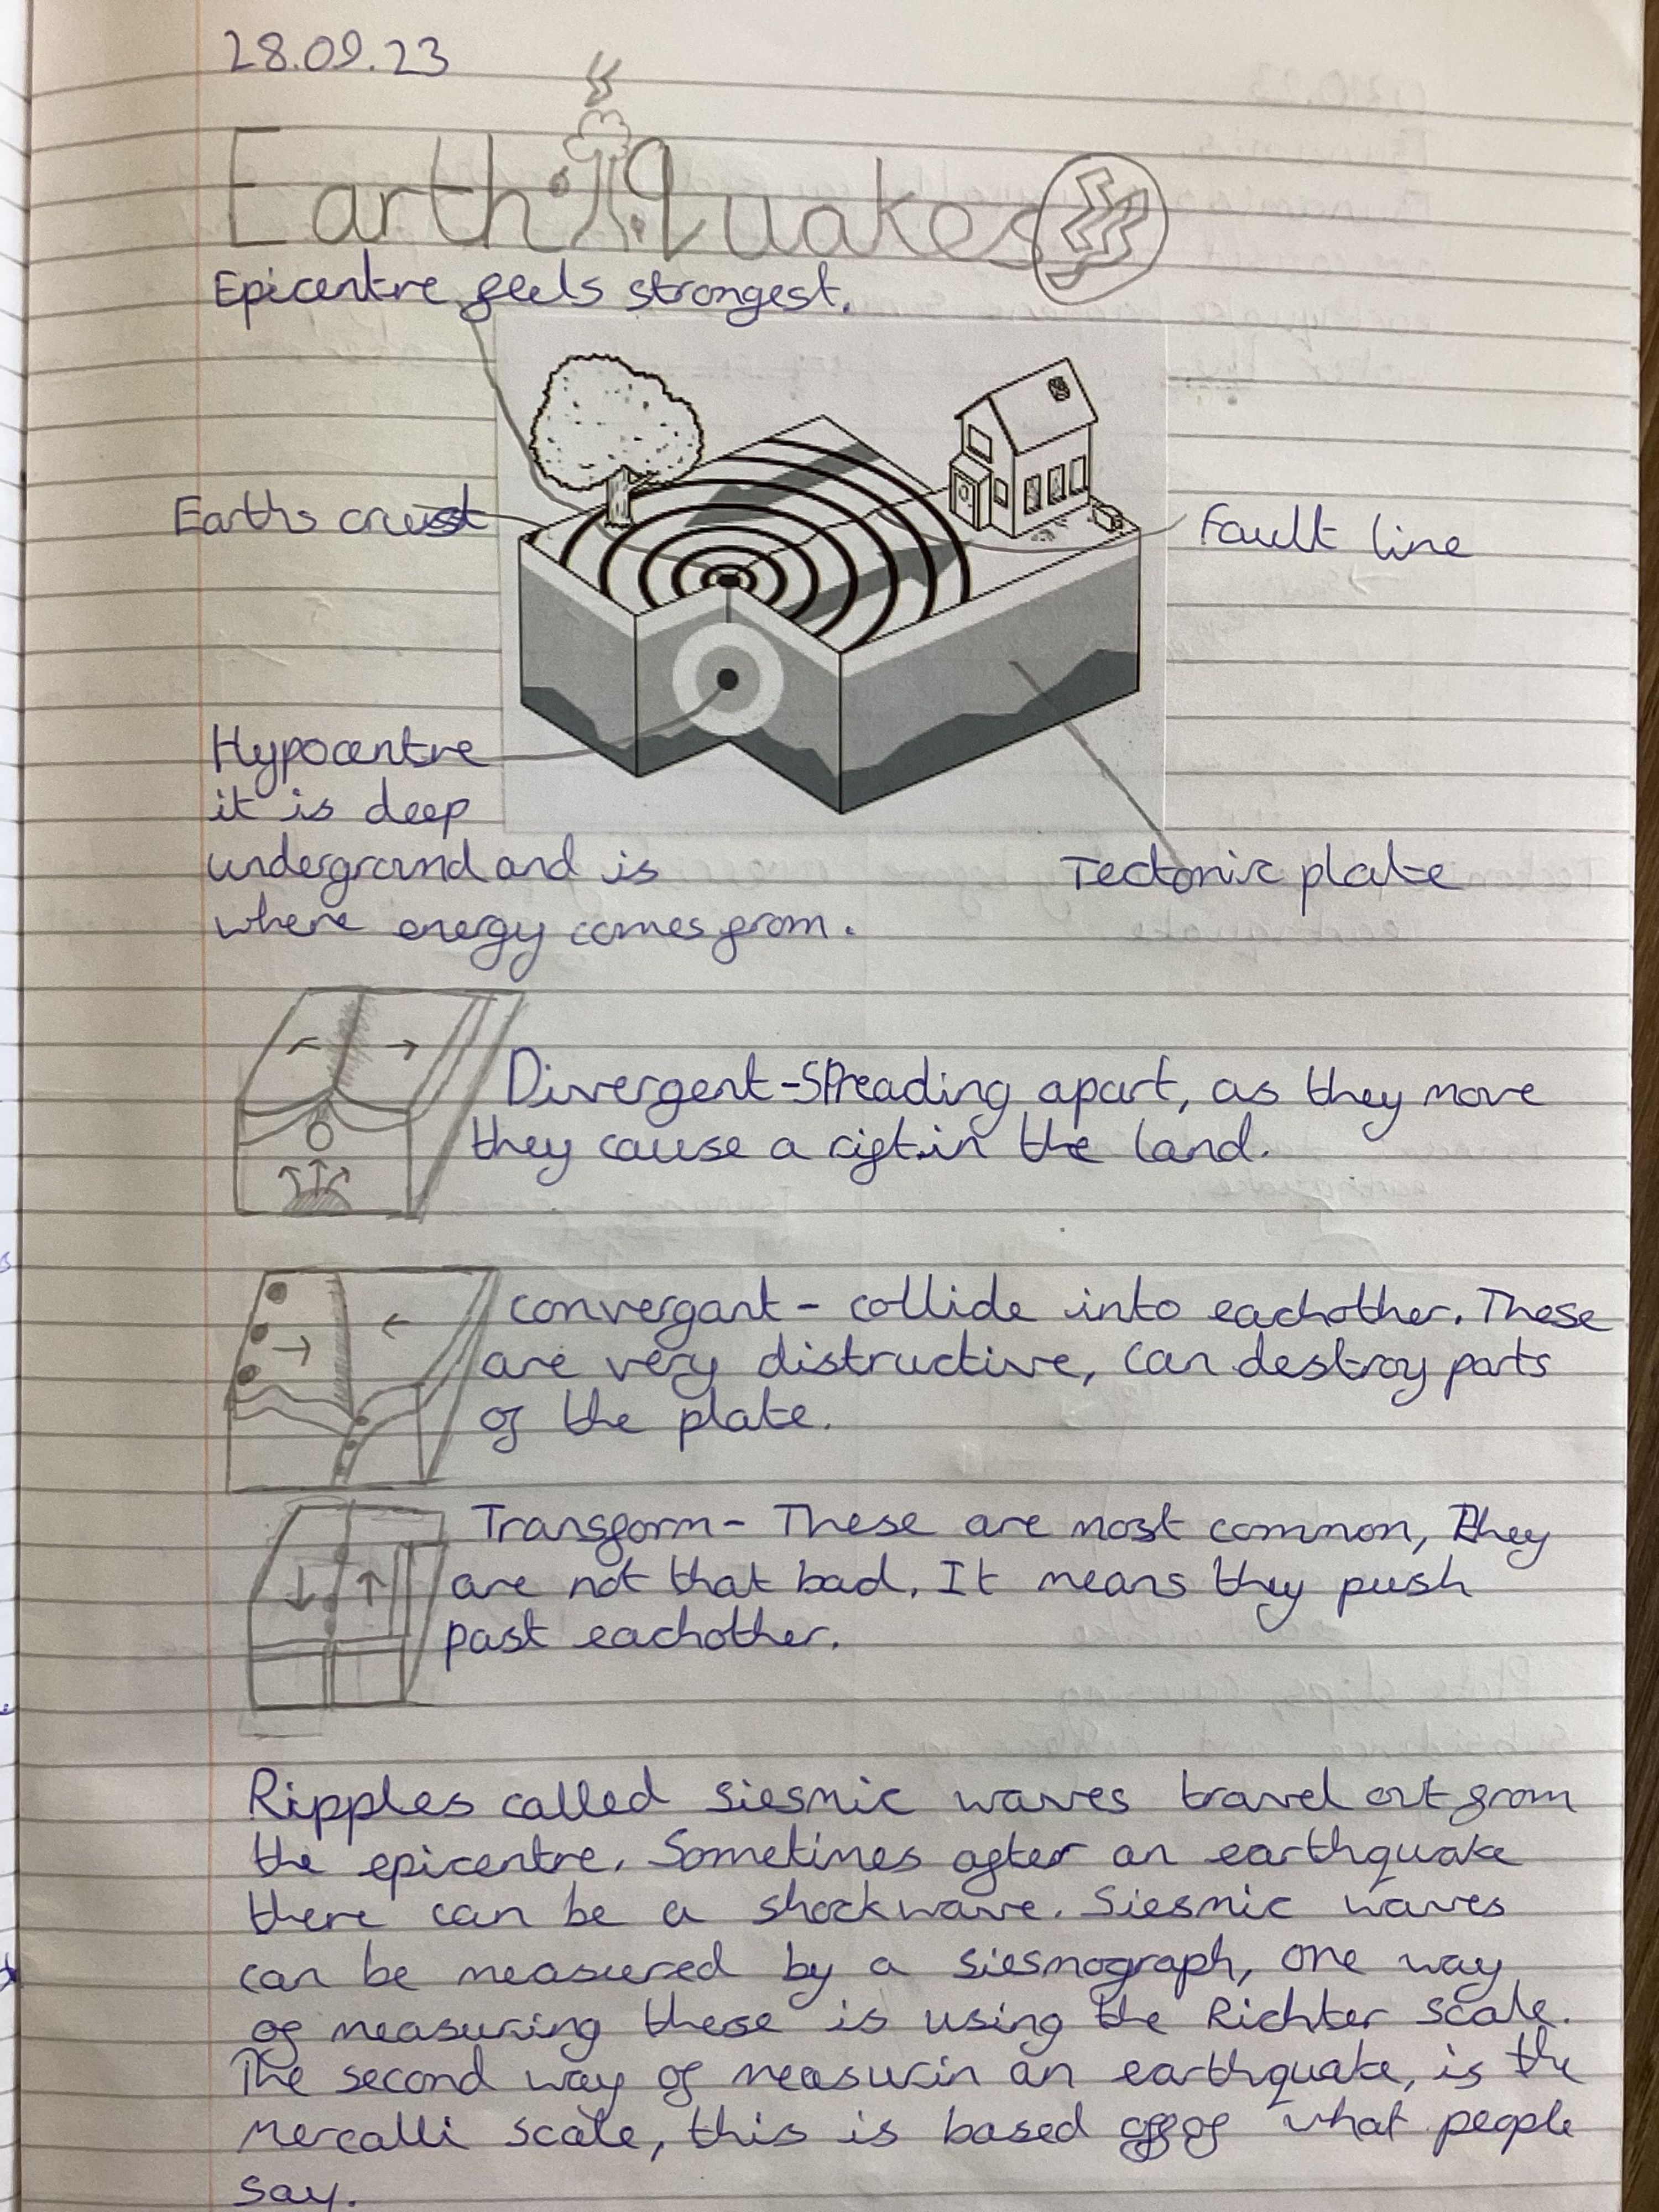 28.09.23
Earth Quakes
Epicentre feels strongest.
Earths crust
Fault line
Hypocentre
it is deep
underground and is
where energy comes from.
Tectonic plate
Divergent-Spreading apart, as they move
they cause a rift in the land.
convergant - collide into eachother. These
are very distructive, can destroy parts
of the plate.
Transform - These are most common, they
are not that bad. It means they push
past eachother.
Ripples called siesmic waves travel out from
the epicentre. Sometimes after an earthquake
there can be a shockwave. Siesmic waves
can be measured by a siesmograph, one way
of measuring these is using the Richter scale.
The second way of measurin an earthquake, is the
Mercalli scale, this is based off of what people
say.